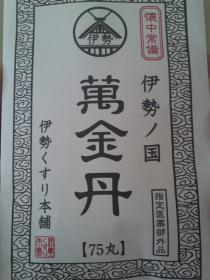 懐中常備
伊勢
伊勢ノ国
萬金丹
伊勢くすり本舗
指定医薬部外品
【75丸】